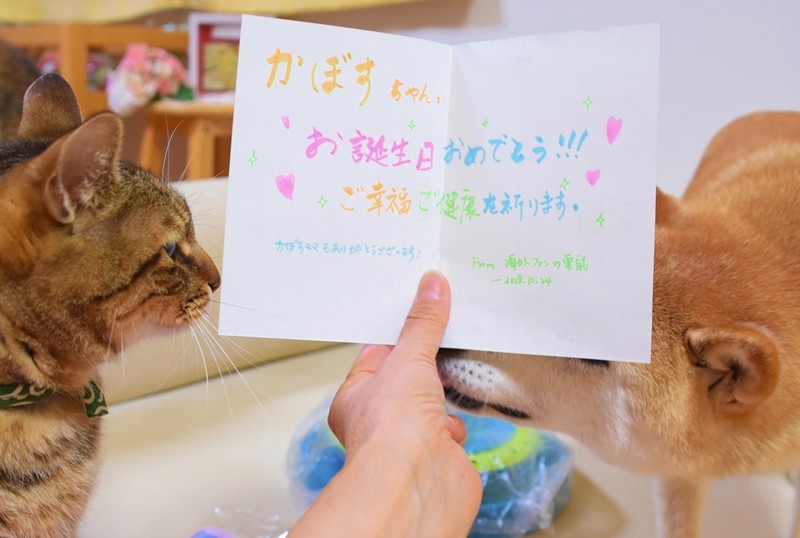 かぼすちゃん:
お誕生日おめでとう!!!
ご幸福ご健康を祈ります。
ありがとうございます!
From 海外ファンの栗鼠
— 2018.10.24